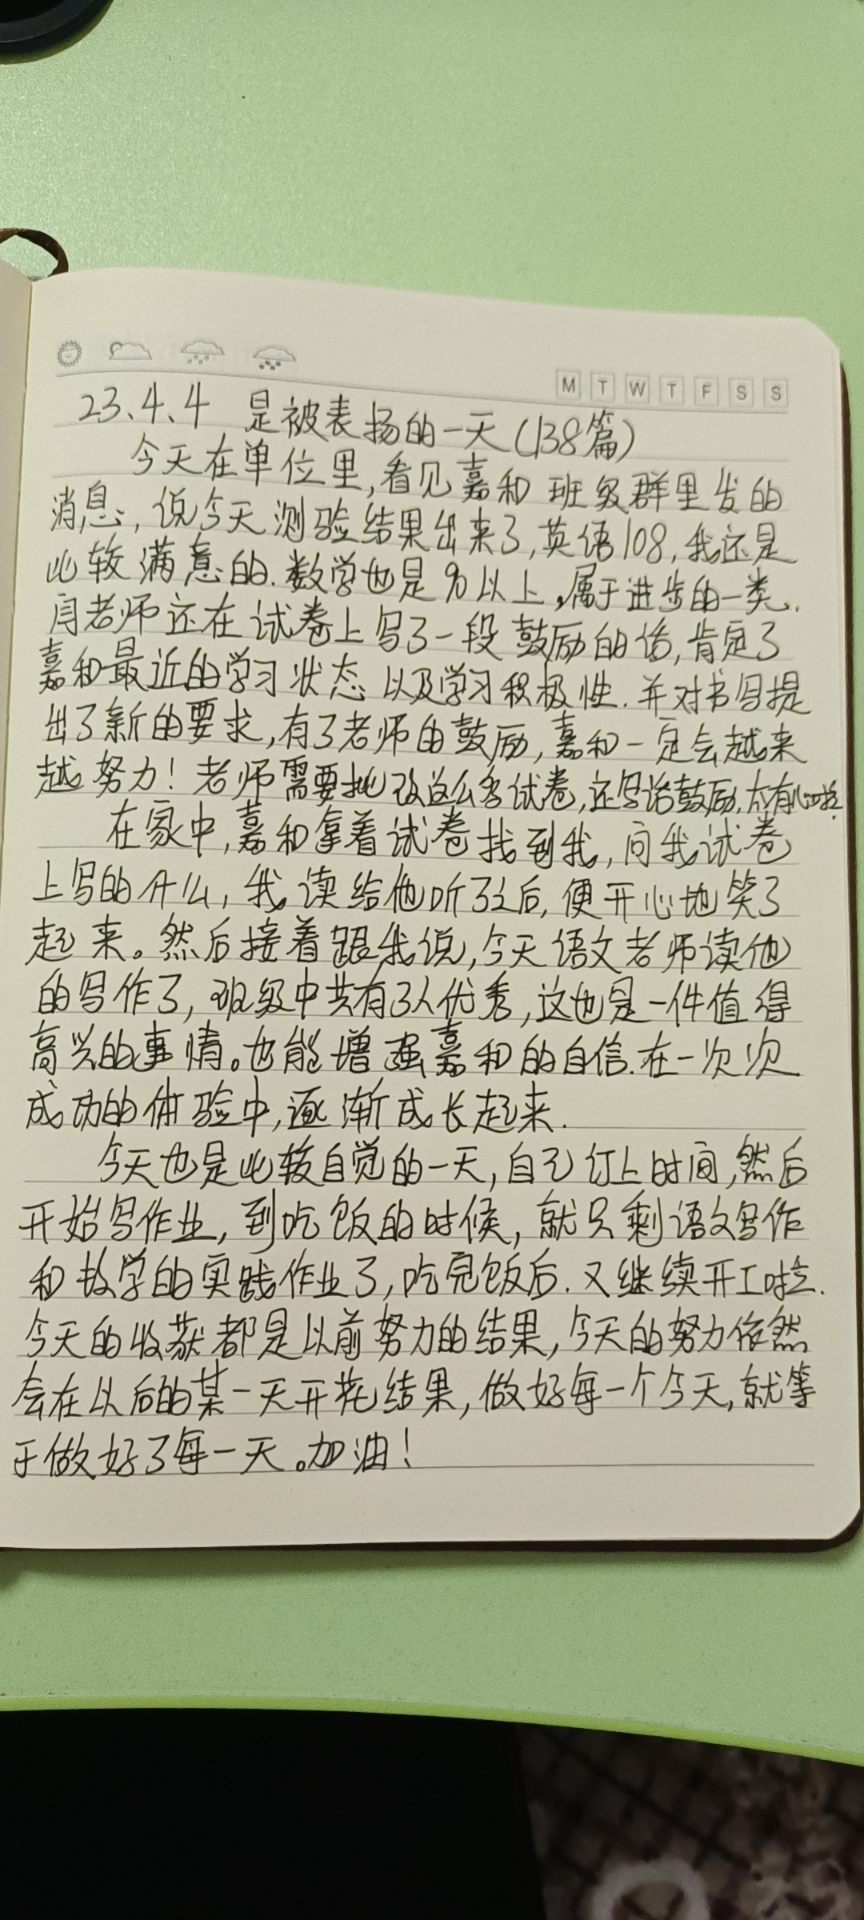 M T W T F S S
23.4.4 是被表扬的一天(138篇)
今天在单位里,看见嘉和班级群里发的
消息,说今天测验结果出来了,英语108,我还是
比较满意的.数学也是90以上,属于进步的一类.
闫老师还在试卷上写了一段鼓励的话,肯定了
嘉和最近的学习状态以及学习积极性.并对书写提
出了新的要求,有了老师的鼓励,嘉和一定会越来
越努力!老师需要批改这么多试卷,还写话鼓励,太有心啦.
在家中,嘉和拿着试卷找到我,问我试卷
上写的什么,我读给他听了以后,便开心地笑了
起来。然后接着跟我说,今天语文老师读他
的写作了,班级中共有3人优秀,这也是一件值得
高兴的事情。也能增强嘉和的自信.在一次次
成功的体验中,逐渐成长起来.
今天也是比较自觉的一天,自己订上时间,然后
开始写作业,到吃饭的时候,就只剩语文写作
和数学的实践作业了,吃完饭后.又继续开工啦.
今天的收获都是以前努力的结果,今天的努力依然
会在以后的某一天开花结果,做好每一个今天,就等
于做好了每一天。加油!